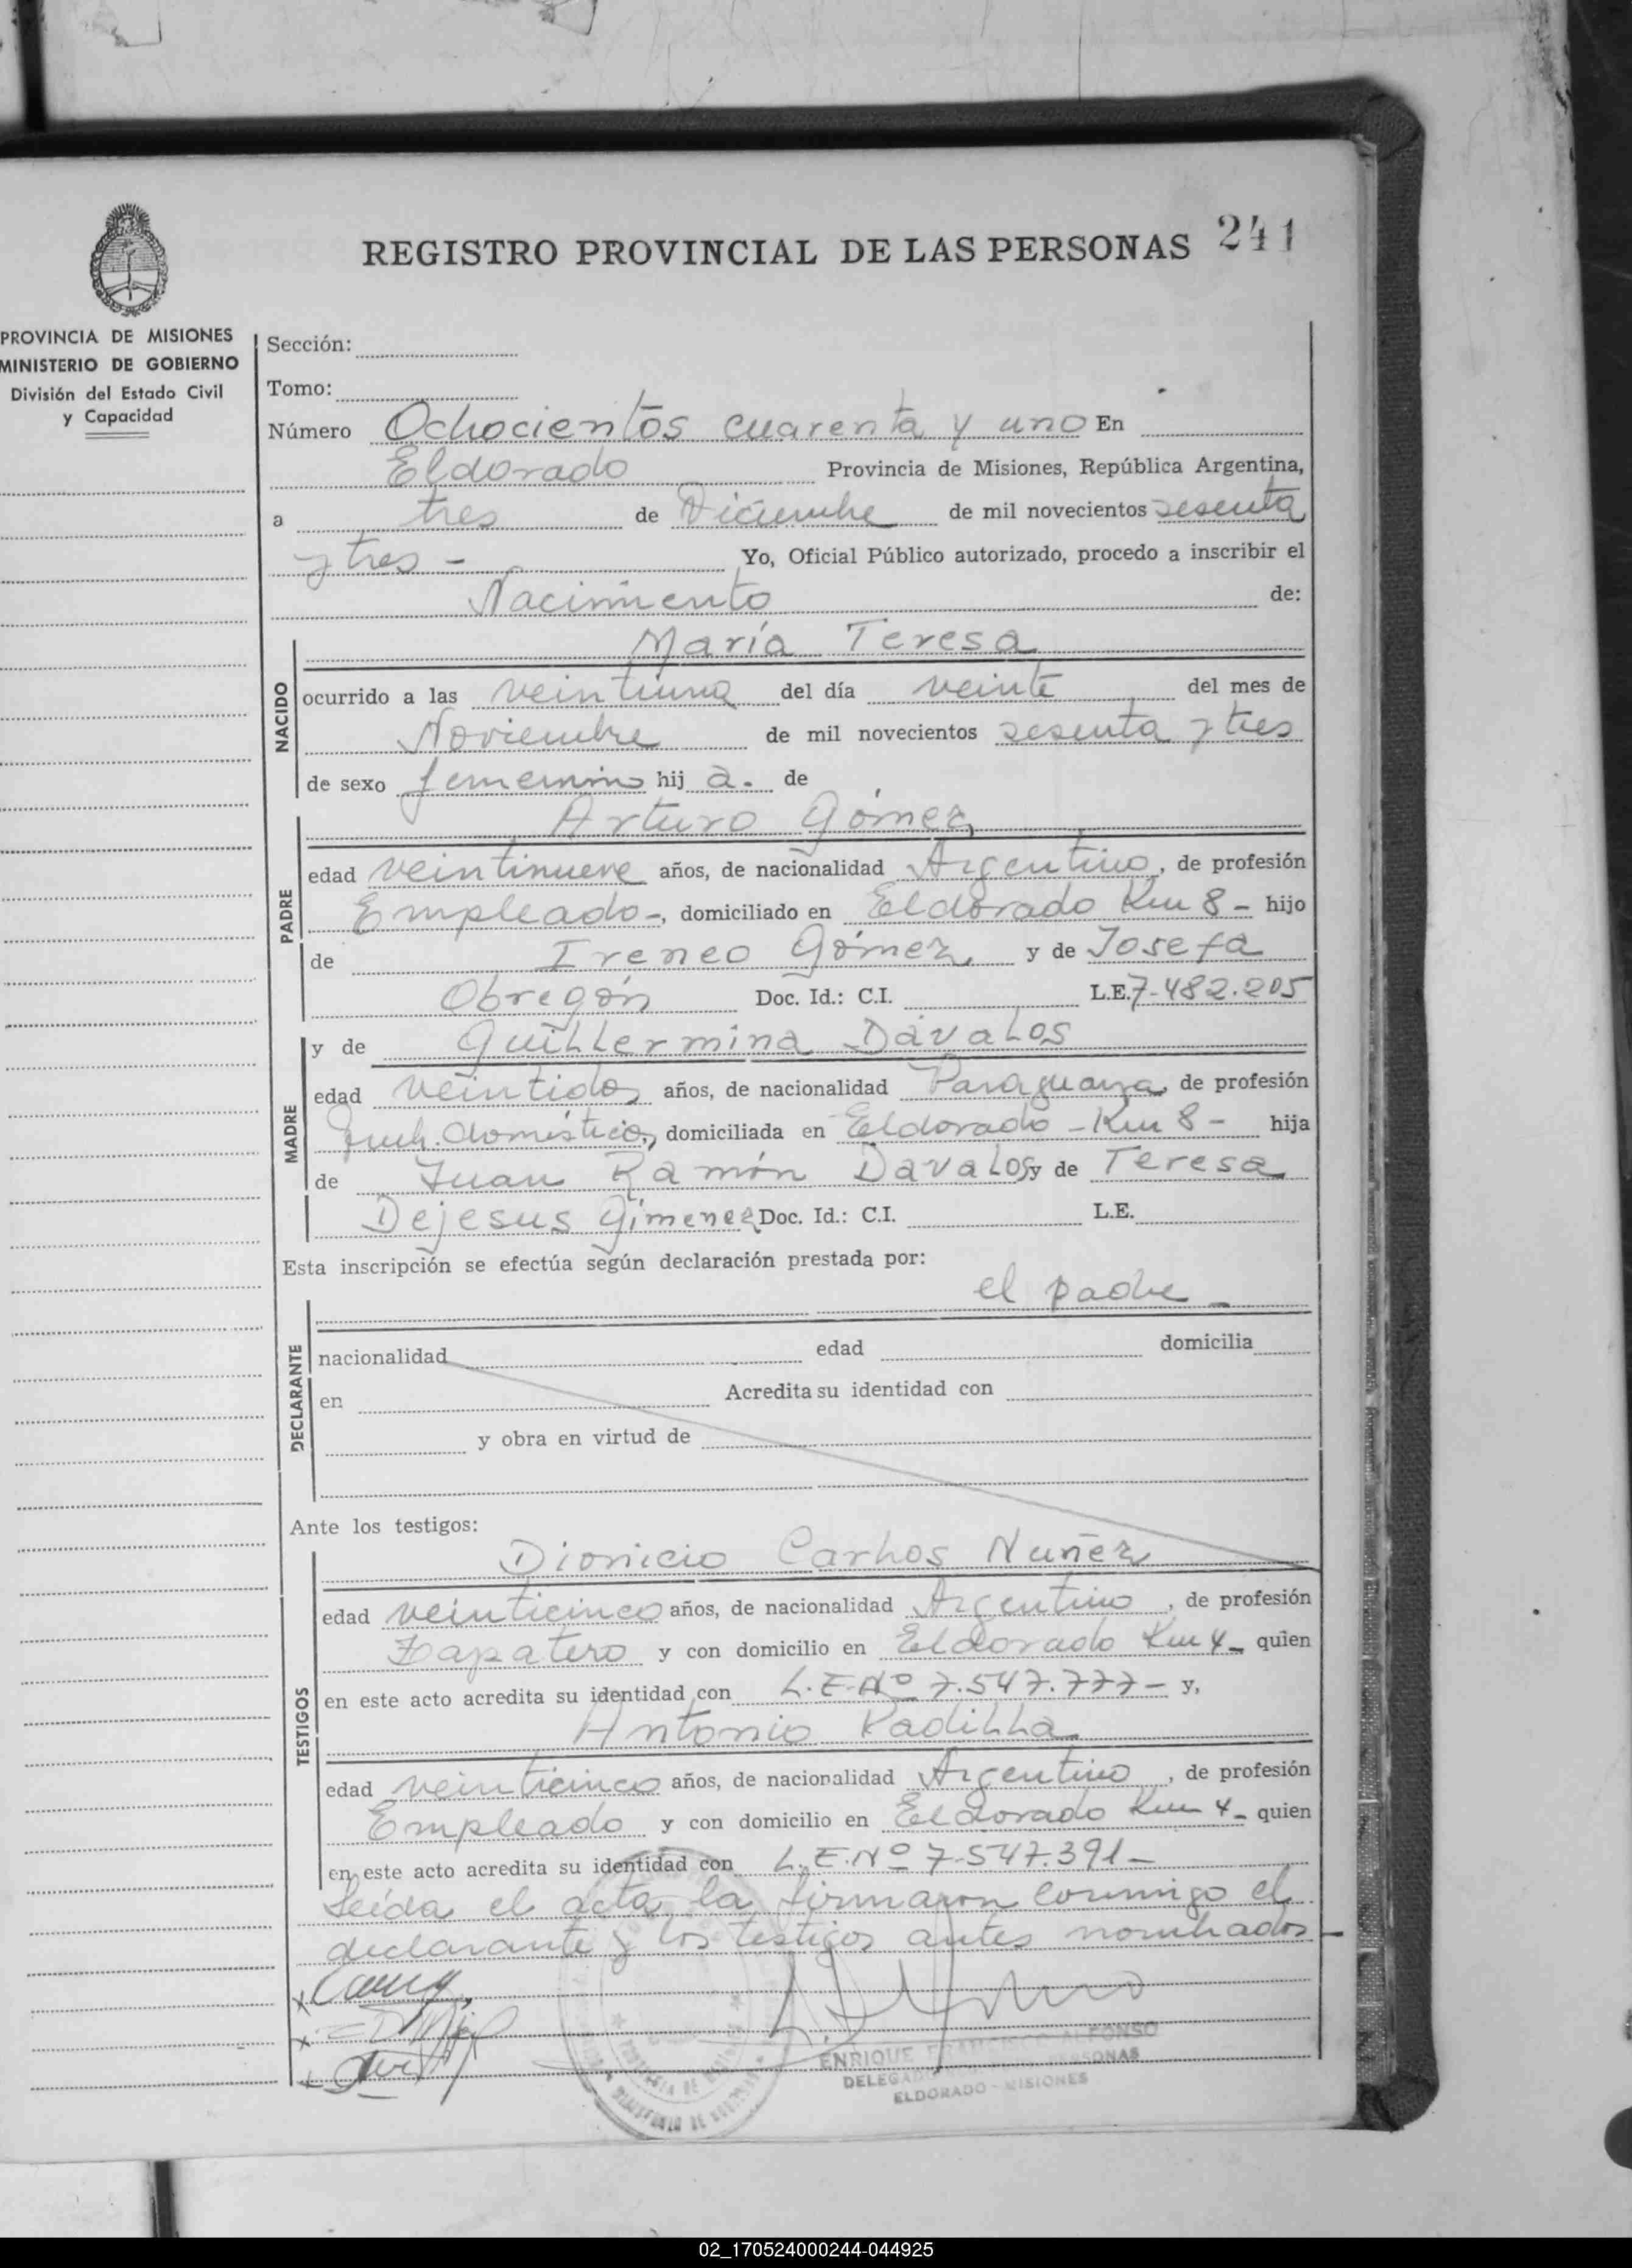 REGISTRO PROVINCIAL DE LAS PERSONAS 241
PROVINCIA DE MISIONES
MINISTERIO DE GOBIERNO
División del Estado Civil
y Capacidad
Sección:
Tomo:
Número Ochocientos cuarenta y uno En
Eldorado Provincia de Misiones, República Argentina,
a tres de Diciembre de mil novecientos sesenta
y tres - Yo, Oficial Público autorizado, procedo a inscribir el
Nacimiento de:
NACIDO
María Teresa
ocurrido a las veintiuna del día veinte del mes de
Noviembre de mil novecientos sesenta y tres
de sexo femenino hij a. de
PADRE
Arturo Gómez
edad veintinueve años, de nacionalidad Argentino, de profesión
Empleado-, domiciliado en Eldorado Km 8 - hijo
de Ireneo Gómez y de Josefa
Obregón Doc. Id.: C.I. L.E. 7.482.205
MADRE
y de Guillermina Dávalos
edad veintidos años, de nacionalidad Paraguaya, de profesión
doméstico, domiciliada en Eldorado - Km 8 - hija
de Juan Ramón Davalos y de Teresa
Dejesus Gimenez Doc. Id.: C.I. L.E.
Esta inscripción se efectúa según declaración prestada por:
el padre -
DECLARANTE
nacionalidad edad domicilia
en Acredita su identidad con
y obra en virtud de
Ante los testigos:
TESTIGOS
Dionicio Carlos Nuñez
edad veinticinco años, de nacionalidad Argentino, de profesión
Zapatero y con domicilio en Eldorado Km 4 - quien
en este acto acredita su identidad con L.E.Nº 7.547.777 - y,
Antonio Padilla
edad veinticinco años, de nacionalidad Argentino, de profesión
Empleado y con domicilio en Eldorado Km 4 - quien
en este acto acredita su identidad con L.E.Nº 7.547.391 -
Leída el acta, la firmaron conmigo el
declarante y los testigos antes nombrados -
ENRIQUE FRANCISCO ALFONSO
ELDORADO - MISIONES
02_170524000244-044925